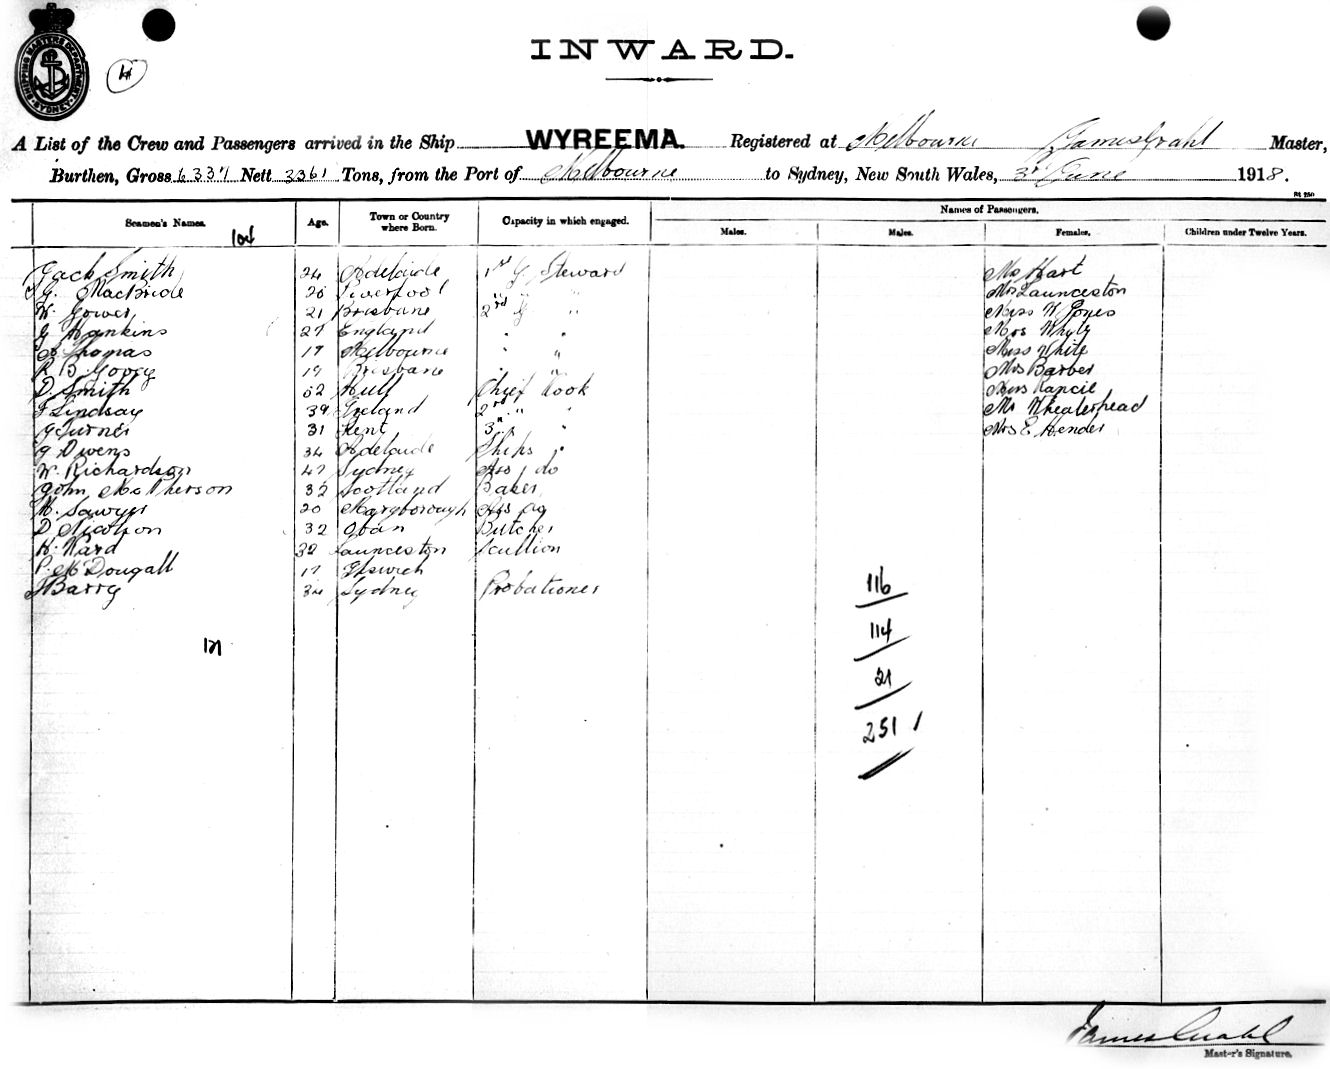 SHIPPING MASTERS DEPARTMENT SYDNEY
INWARD.
A List of the Crew and Passengers arrived in the Ship WYREEMA. Registered at Melbourne James Grahl Master,
Burthen, Gross 6337 Nett 3361 Tons, from the Port of Melbourne to Sydney, New South Wales, 3rd June 1918.
Seamen's Names. Age. Town or Country where Born. Capacity in which engaged. Names of Passengers.
Males. Males. Females. Children under Twelve Years.
104
Jack Smith 24 Adelaide 1st G. Steward Mrs Hart
G. MacBride 20 Liverpool " " Mrs Launceston
W. Gower 21 Brisbane 2nd G " Miss W Jones
J Hankins 27 England " " Mrs Whyte
Thomas 17 Melbourne " " Miss White
R B Gorry 19 Brisbane " " Mrs Barber
D Smith 52 Hull Chief Cook Miss
F Lindsay 39 Ireland 2nd " " Wheateshead
G Turner 31 Kent 3rd " " Mrs E Hender
G Owens 34 Adelaide Ships "
W. Richardson 47 Sydney Ass do
John McPherson 32 Scotland Baker
M. Sawyer 20 Maryborough Ass do
D Nicolson 32 Oban Butcher
H. Ward 32 Launceston Scullion
P. McDougall 17 Ipswich
J Barry 34 Sydney Probationer
121
116
114
21
251
James Grahl
Master's Signature.